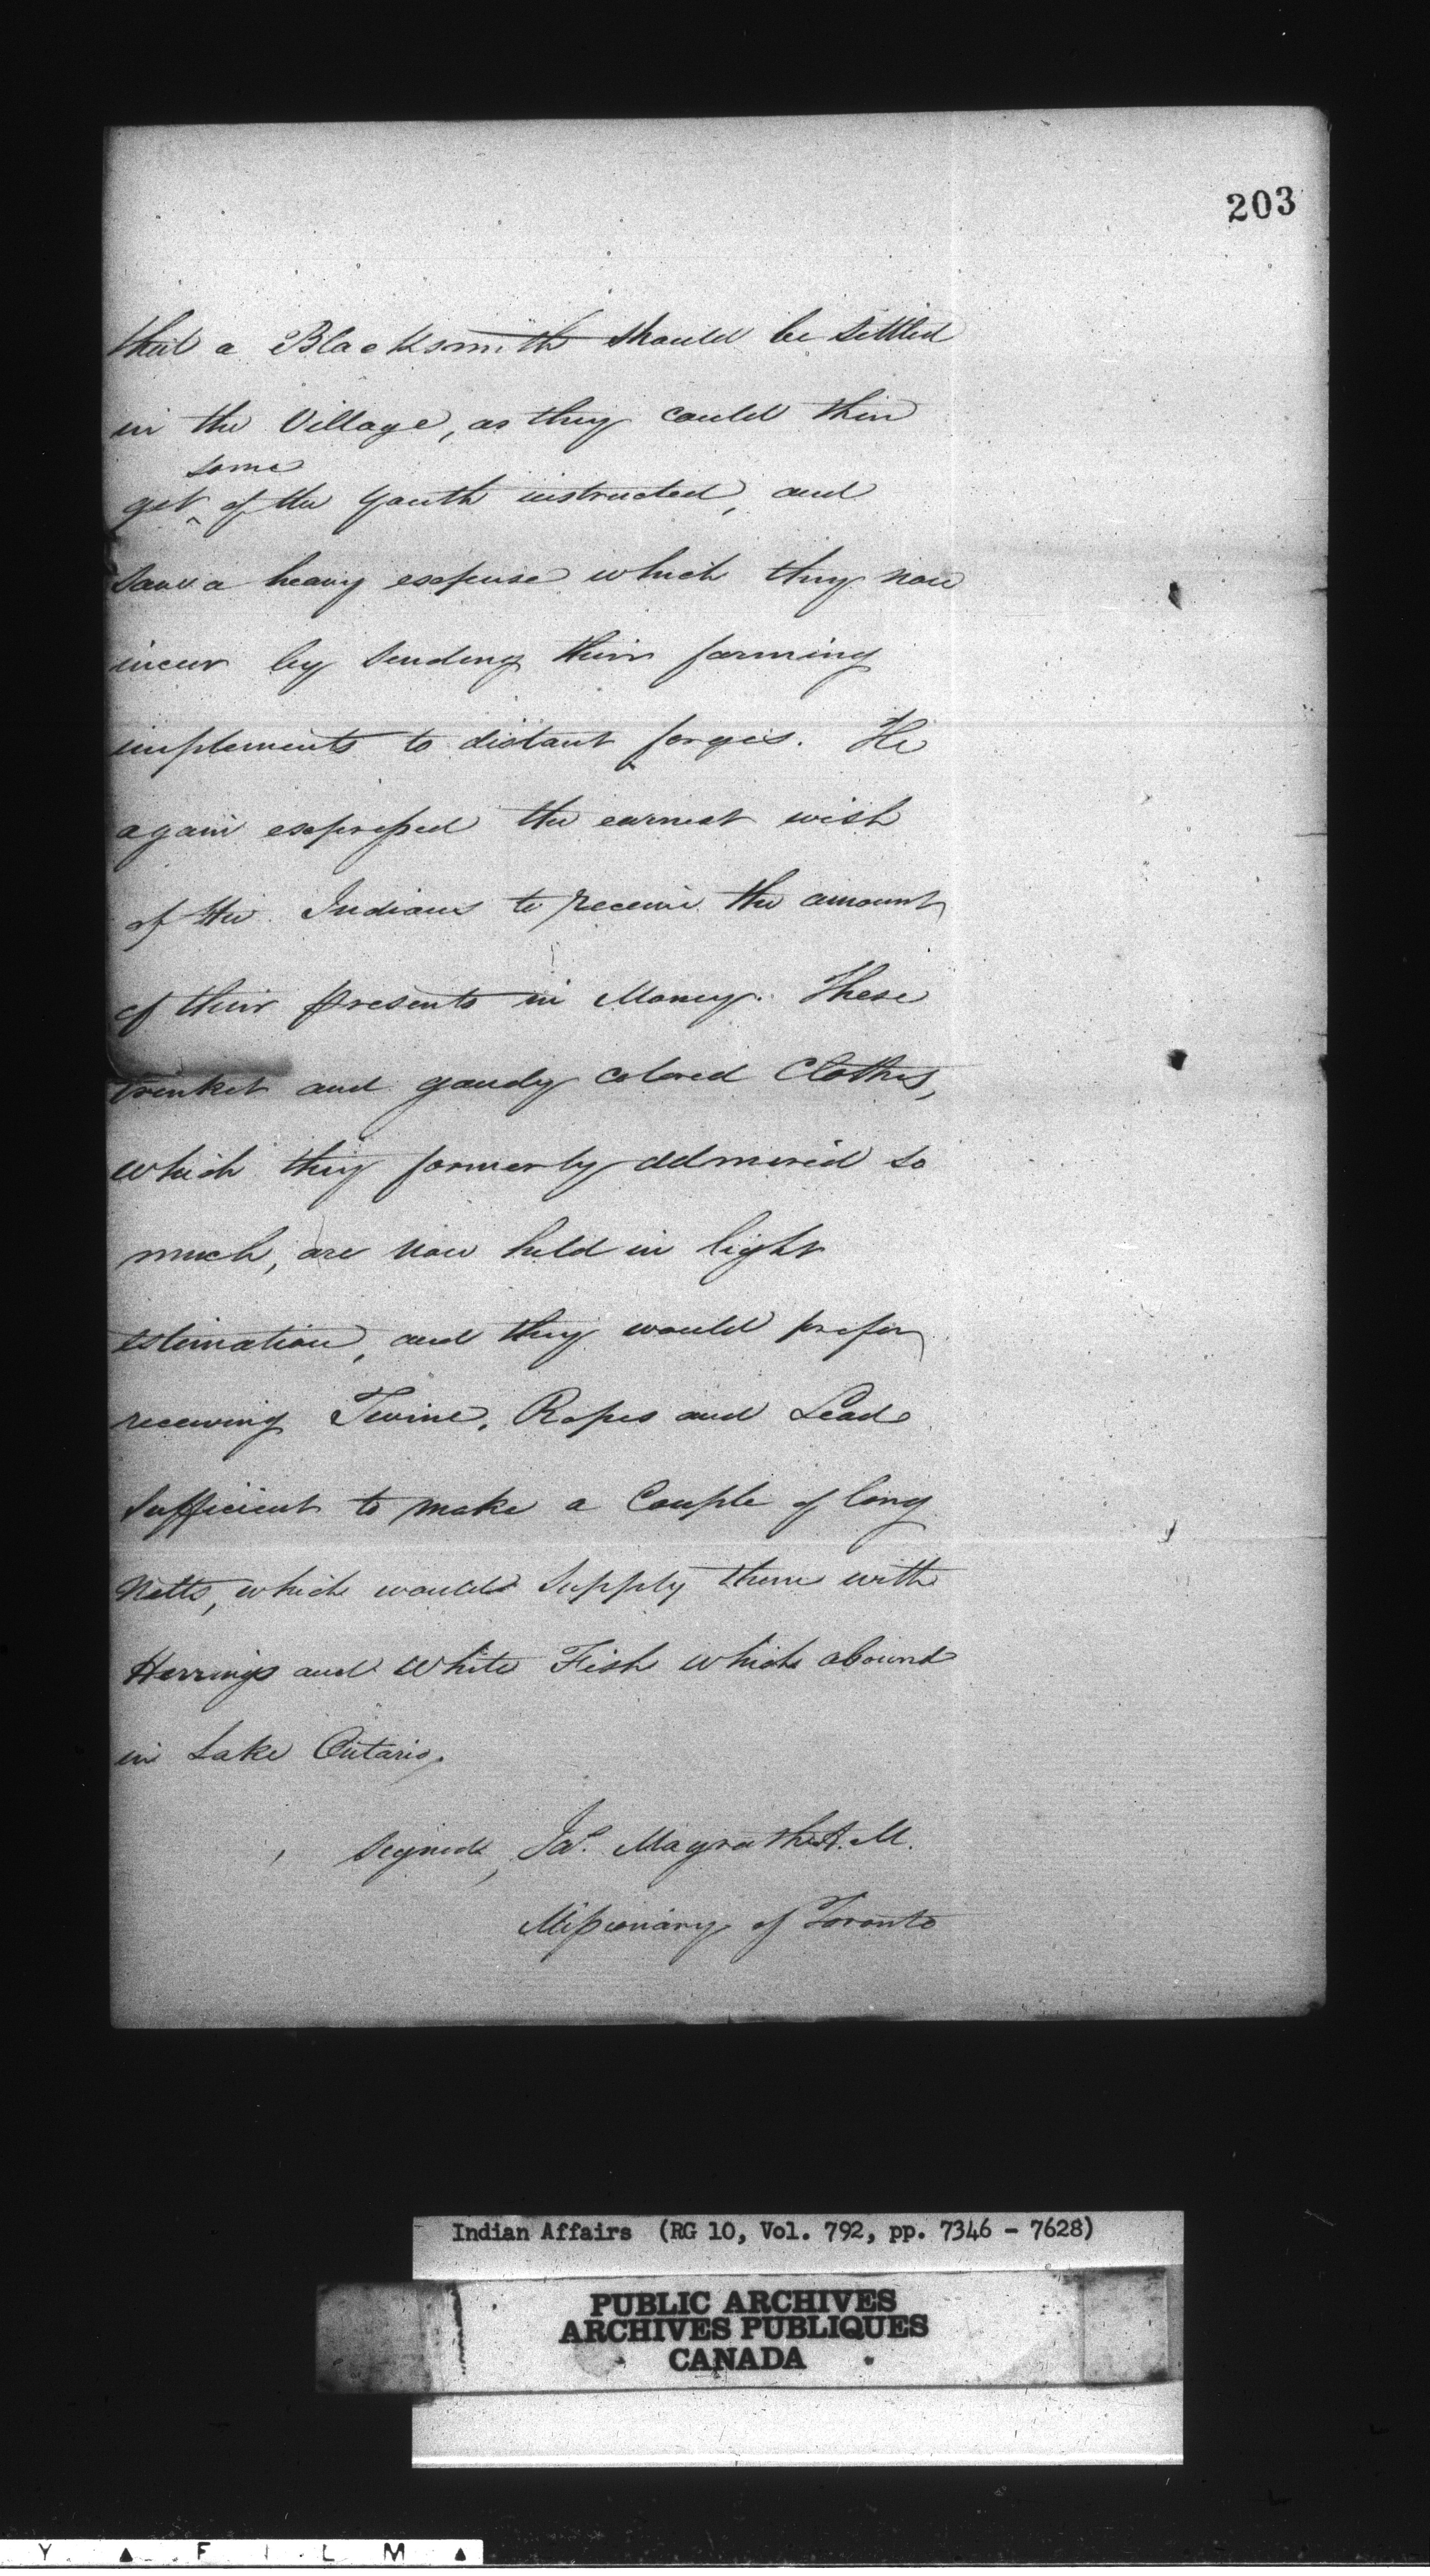 203
that a Blacksmith should be settled
in the Village, as they could then
some
get ‸ of the Youth instructed, and
save a heavy expense which they now
incur by sending their farming
implements to distant forges. He
again expressed the earnest wish
of the Indians to receive the amount
of their presents in Money. These
trinket and gaudy colored Clothes,
which they formerly admired so
much, are now held in light
estimation, and they would prefer
receiving Twine, Ropes and Lead
sufficient to make a Couple of long
Netts, which would supply them with
Herrings and White Fish which abound
in Lake Ontario.
signed, Jas. Magrath A.M.
Missionary of Toronto
Indian Affairs (RG 10, Vol. 792, pp. 7346 - 7628)
PUBLIC ARCHIVES
ARCHIVES PUBLIQUES
CANADA
Y A F I L M